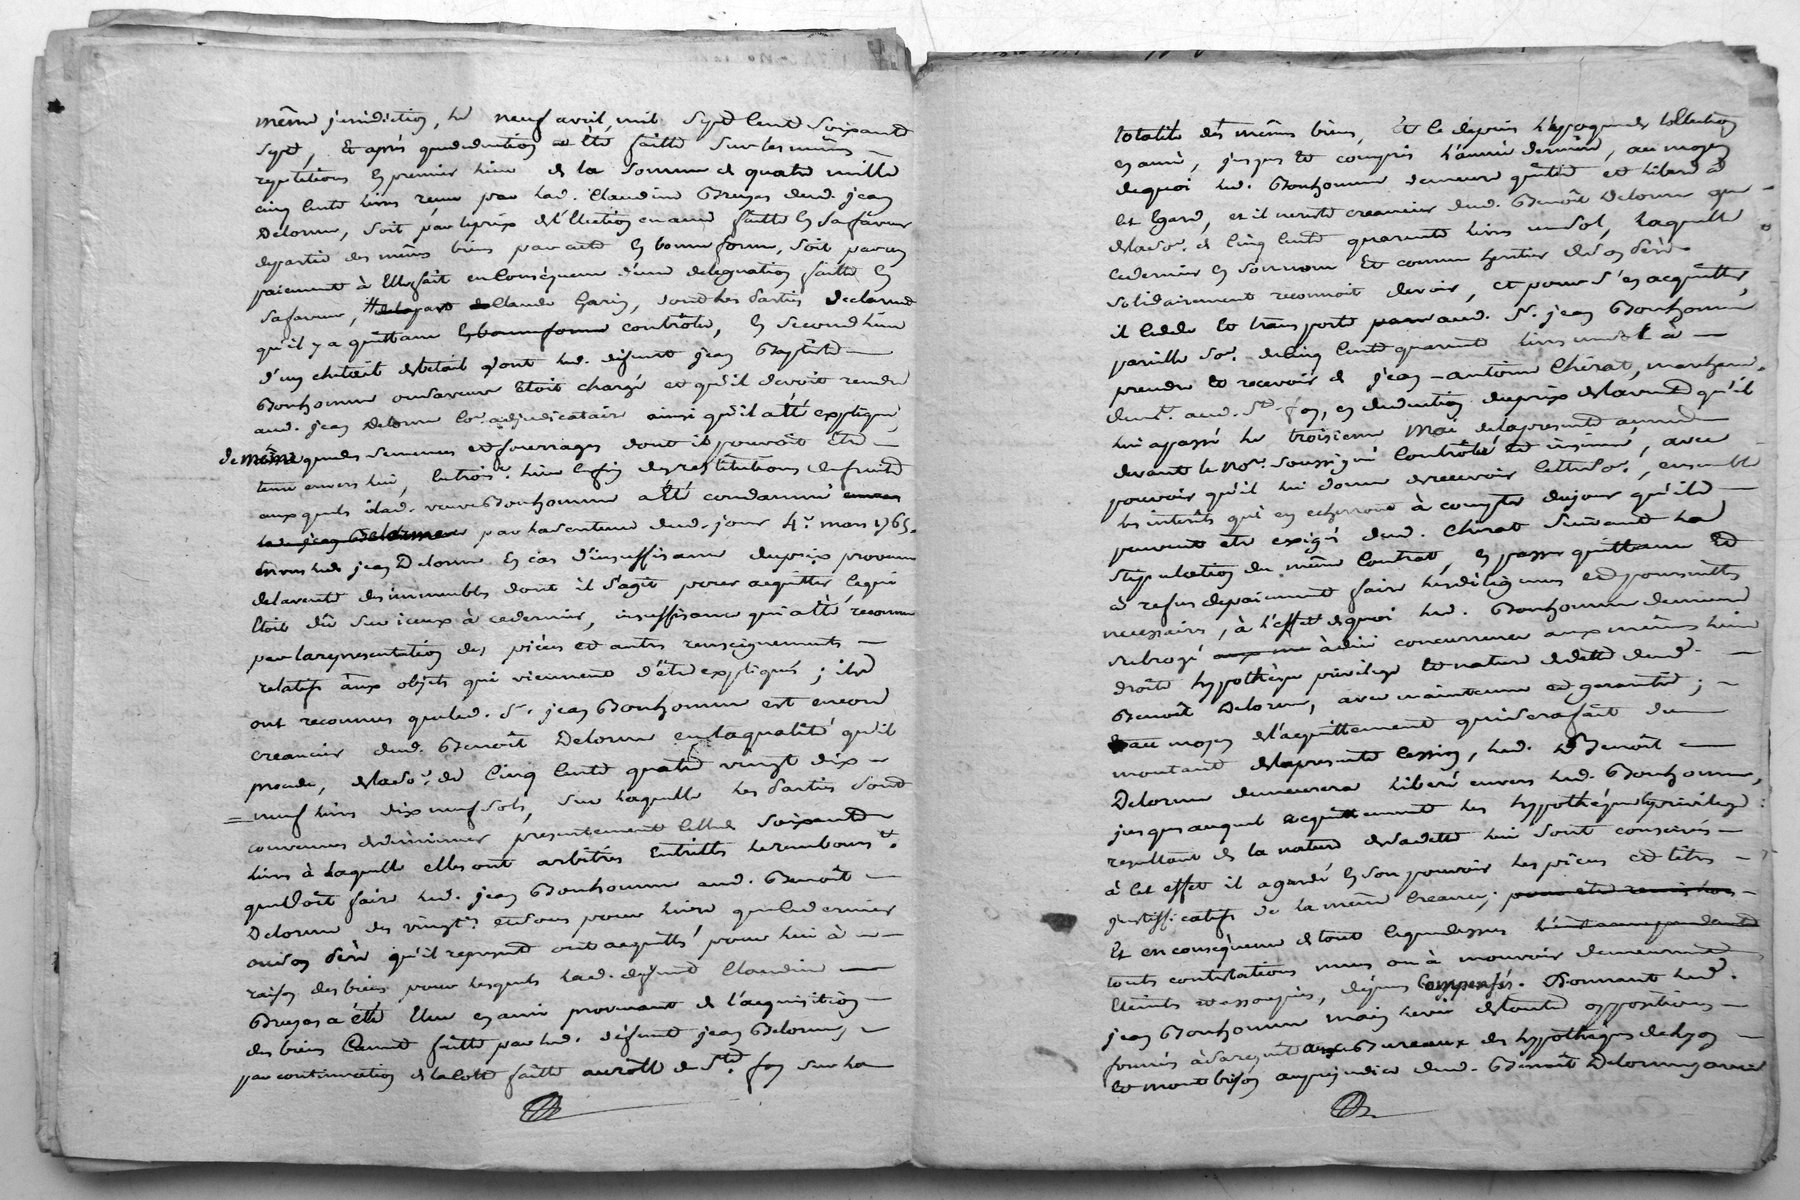 même juridiction, le neuf avril mil sept cent soixante
sept, Et après que deduction a été faitte sur les mêmes
repetitions en premier lieu de la somme de quatre mille
cinq cents livres reçue par lad. Claudine Bruyas dud. jean
Delorme, soit par le prix de l'Election en ami faitte en sa faveur
de partie des mêmes biens par acte en bonne forme, soit par un
paiement à Elle fait en Conséquence d'une delegation faitte en
sa faveur, de la part de Claude Garin, dont les parties declarent
qu'il y a quittance en bonne forme controlée, en second lieu
d'un cheteil de betail dont led. defunt jean Baptiste
Bonhomme ou sa veuve Etoit chargé et qu'il devoit rendre
aud. jean Delorme co-adjudicataire ainsi qu'il a été expliqué,
de même que des semences et fourrages dont il pouvoit être
tenu envers lui, En trois.e lieu Enfin des restitutions de fruits
auxquels lad. veuve Bonhomme a été condamnée envers
led. jean Delorme par la sentence dud. jour 4.e mars 1765.
envers led. jean Delorme En cas d'insuffisance du prix provenu
de la vente des immeubles dont il s'agit pour acquitter ce qui
Etoit dû sur iceux à ce dernier, insuffisance qui a été reconnue
par la representation des pièces et autres renseignements
relatifs aux objets qui viennent d'être expliqués; ils
ont reconnus que led. S.r jean Bonhomme est encore
creancier dud. Benoît Delorme en la qualité qu'il
procede, de la so.e de Cinq Cents quatre vingt dix
neuf livres dix neuf sols, sur laquelle les parties sont
convenues de diminuer presentement Celle de soixante
livres à laquelle elles ont arbitrés Entr'elles le rembours.t
que doit faire led. jean Bonhomme aud. Benoît
Delorme des vingt.es et sous pour livre que ce dernier
ou son père qu'il represente ont acquittés pour lui à
raison des biens pour lesquels lad. defunte Claudine
Bruyas a été Elue en ami provenant de l'acquisition
des biens Canet faitte par led. défunt jean Delorme,
par continuation de la cote faitte au rolle de S.te foy sur la
totalité des mêmes biens, Et ce depuis l'epoque de l'Election
en ami, jusques et compris l'année derniere, au moyen
de quoi led. Bonhomme demeure quitte et liberé à
cet Egard, et il n'reste creancier dud. Benoît Delorme que
de la so.e de Cinq Cents quarante livres un sol, laquelle
ce dernier en son nom Et comme heritier de son père
solidairement reconnoit devoir, et pour s'en acquitter,
il cede et transporte aud. S.r jean Bonhomme
pareille so.e de Cinq Cents quarante livres un sol à
prendre et recevoir de jean-antoine Chirat, marchand
dem.t aud. S.te foy, en deduction du prix de la vente qu'il
lui a passé le troisieme Mai de la presente année
devant le No.re soussigné Controlée et insinuée, avec
pouvoir qu'il lui donne de recevoir cette so.e, ensemble
les intérêts qui en echerront à compter du jour qu'ils
peuvent être exigés dud. Chirat suivant la
stipulation du même Contrat, en passer quittance et
à refus de paiement faire les diligences et poursuittes
necessaires, à l'effet de quoi led. Bonhomme demeure
subrogé à due concurrence aux mêmes lieu
droits hypothèque privilege et nature de dette dud.
Benoît Delorme, avec maintenue et garantie;
au moyen de l'acquittement qui sera fait du
montant de la presente cession, led. Benoît
Delorme demeurera liberé envers led. Bonhomme,
jusques auquel acquittement les hypothéques privilege
resultant de la nature de sa dette lui sont conservés
à cet effet il a gardé en son pouvoir les pièces et titres
justifficatifs de la même Creance; pour être remis lors
Et en conséquence de tout ce que dessus
touts contestations mues ou à mouvoir demeurent
Eteints et assoupies, dépens Compensés. Donnant led.
jean Bonhomme main levée de toute oppositions
formés à sa requête aux Bureaux des hypothèques de Lyon
et montbrison au préjudice dud. Benoît Delorme avec